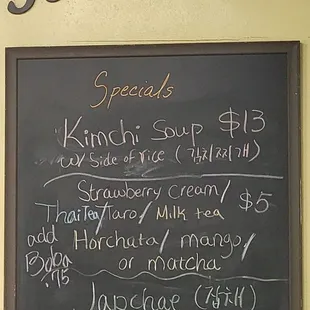 Specials
Kimchi Soup $13
w/ Side of rice (김치찌개)
Strawberry cream/
Thai Tea/Taro/ Milk tea $5
add Boba .75
Horchata/ mango/
or matcha
Japchae (잡채)